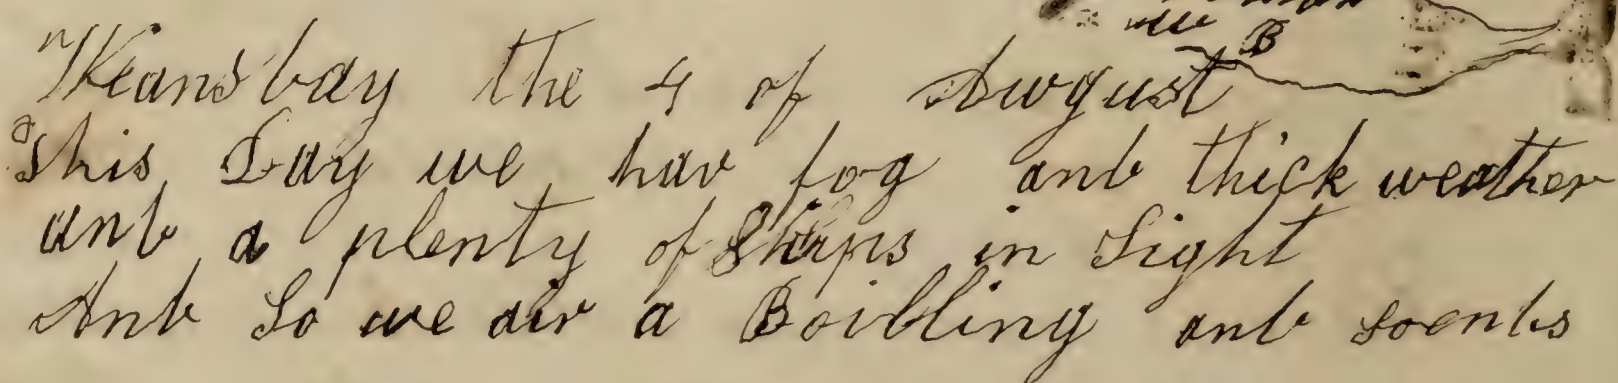 B
Weansday the 4 of August
This Day we hav fog and thick weather
and a plenty of Ships in Sight
And So we air a Boilling and soends